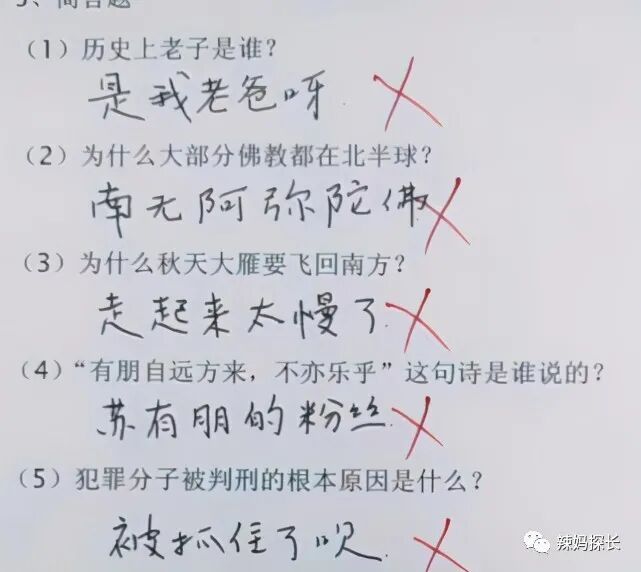 （1）历史上老子是谁？
是我老爸呀.
（2）为什么大部分佛教都在北半球？
南无阿弥陀佛
（3）为什么秋天大雁要飞回南方？
走起来太慢了
（4）“有朋自远方来，不亦乐乎”这句诗是谁说的？
苏有朋的粉丝
（5）犯罪分子被判刑的根本原因是什么？
被抓住了呗
辣妈探长